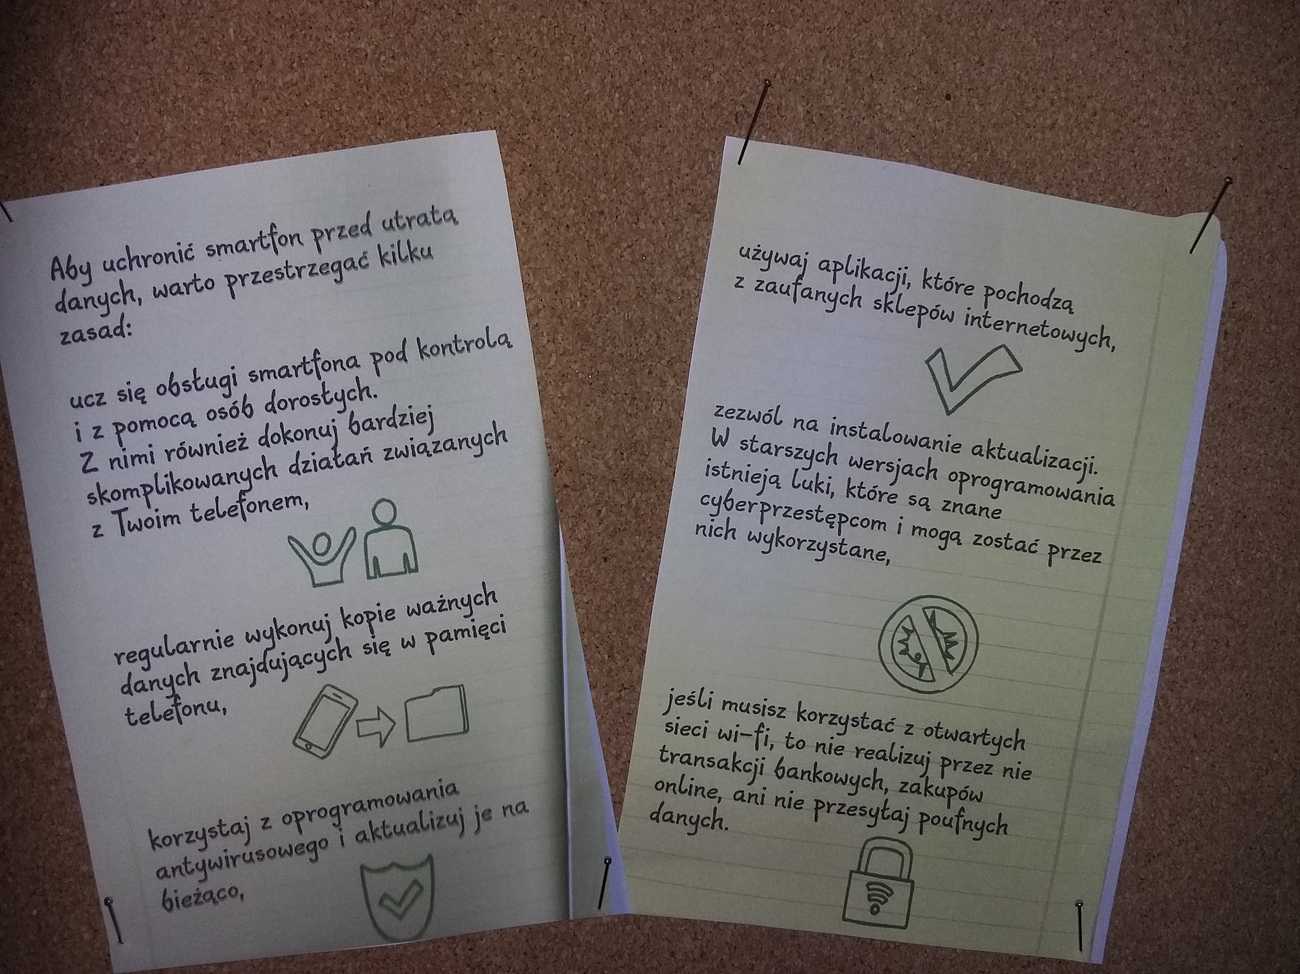 Aby uchronić smartfon przed utratą
danych, warto przestrzegać kilku
zasad:
ucz się obsługi smartfona pod kontrolą
i z pomocą osób dorosłych.
Z nimi również dokonuj bardziej
skomplikowanych działań związanych
z Twoim telefonem,
regularnie wykonuj kopie ważnych
danych znajdujących się w pamięci
telefonu,
korzystaj z oprogramowania
antywirusowego i aktualizuj je na
bieżąco,
używaj aplikacji, które pochodzą
z zaufanych sklepów internetowych,
zezwól na instalowanie aktualizacji.
W starszych wersjach oprogramowania
istnieją luki, które są znane
cyberprzestępcom i mogą zostać przez
nich wykorzystane,
jeśli musisz korzystać z otwartych
sieci wi-fi, to nie realizuj przez nie
transakcji bankowych, zakupów
online, ani nie przesyłaj poufnych
danych.